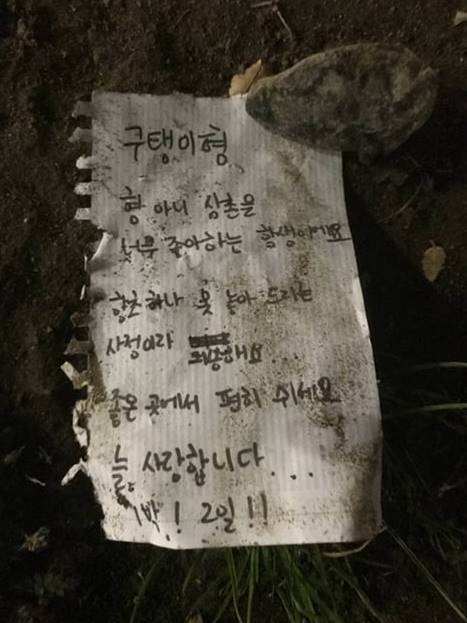 구탱이형
형 아니 삼촌을
너무 좋아하는 학생이에요
향초 하나 못 놓아 드리는
사정이라 죄송해요...
좋은 곳에서 편히 쉬세요
늘, 사랑합니다...
1박! 2일!!